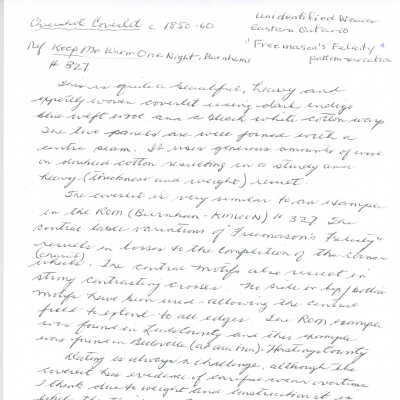 Overshot Coverlet c 1850-60
Unidentified Weaver
Eastern Ontario
"Freemason's Felicity"
pattern variation
Ref Keep Me Warm One Night, Burnhams
# 327
This is quite a beautiful, heavy and
expertly woven coverlet using dark indigo
blue weft wool and a bleach white cotton warp
The two panels are well joined with a
centre seam. It uses generous amounts of wool
on doubled cotton resulting in a sturdy and
heavy (thickness and weight) result.
The coverlet is very similar to an example
in the ROM (Burnham - KMWON) # 327 The
central table variations of "Freemason's Felicity"
results in crosses to the completion of the corner
(chariot)
wheels. The central motifs also result in
strong contrasting crosses. No side or top/bottom
motifs have been used - allowing the central
field to extend to all edges. The ROM example
was found in Leeds County and this example
was found in Belleville (at auction). Hastings County
Dating is always a challenge, although the
coverlet has evidence of careful wear overtime
I think due to weight and construction it is